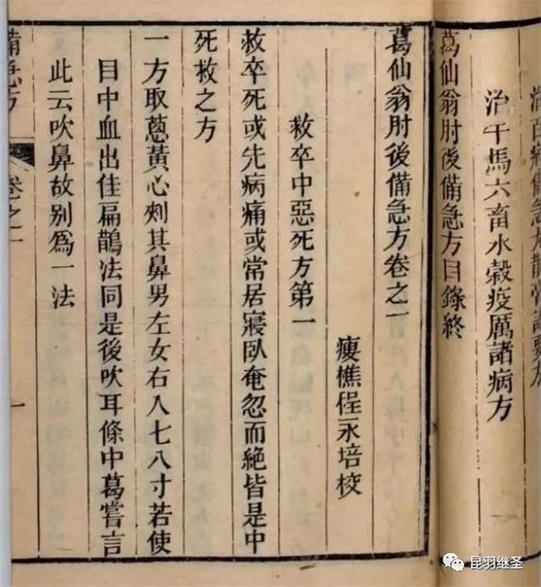 治牛馬六畜水穀疫厲諸病方
葛仙翁肘後備急方目錄終
葛仙翁肘後備急方卷之一
瘦樵程永培校
救卒中惡死方第一
救卒死或先病痛或常居寢臥奄忽而絶皆是中
死救之方
一方取蔥黃心刾其鼻男左女右入七八寸若使
目中血出佳扁鵲法同是後吹耳條中葛嘗言
此云吹鼻故别爲一法
備急方 卷之一 一
昆羽继圣